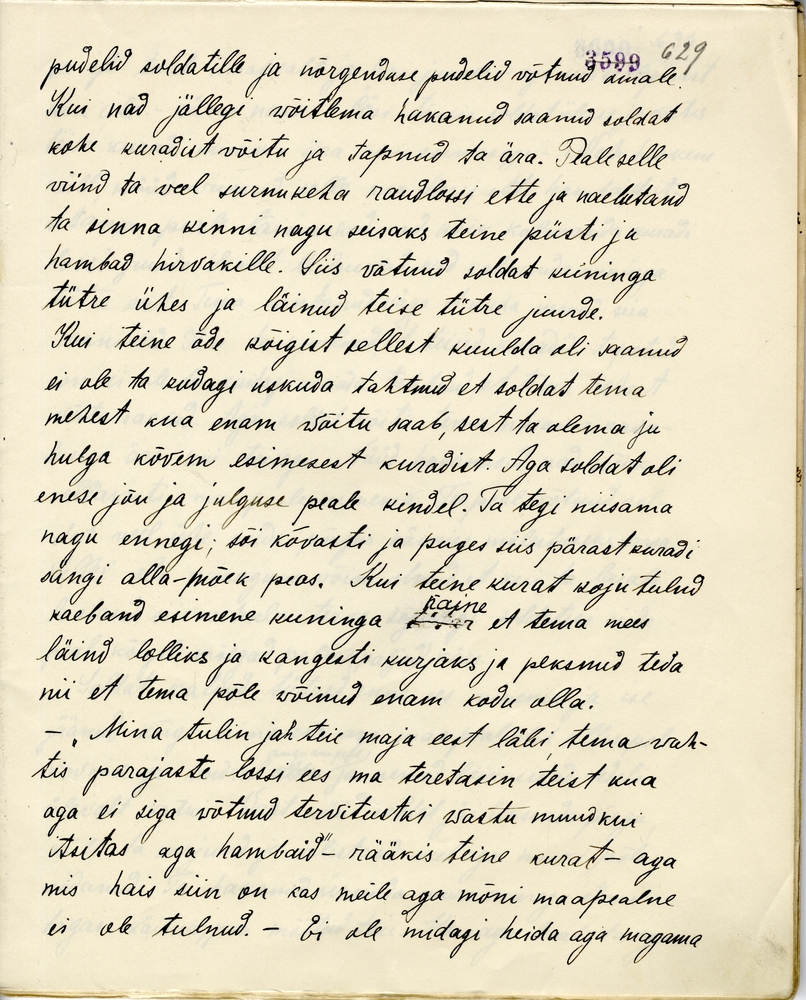 3599 629
pudelid soldatille ja nõrgenduse pudelid võtnud omale.
Kui nad jällegi wõitlema hakanud saanud soldat
kohe kuradist võitu ja tapnud ta ära. Peale selle
viind ta veel surnukeha raudlossi ette ja naelutand
ta sinna kinni nagu seisaks teine püsti ja
hambad hirvakille. Siis võtnud soldat kuninga
tütre ühes ja läinud teise tütre juurde.
Kui teine õde kõigist sellest kuulda oli saanud
ei ole ta kudagi uskuda tahtnud et soldat tema
mehest kua enam wõitu saab, sest ta olema ju
hulga kõvem esimesest kuradist. Aga soldat oli
enese jõu ja julguse peale kindel. Ta tegi niisama
nagu ennegi; sõi kõvasti ja puges siis pärast kuradi
sängi alla – mõek peos. Kui teine kurat koju tulnd
kaeband esimene kuninga naine et tema mees
läind lolliks ja kangesti kurjaks ja peksnud teda
nii et tema põle wõinud enam kodu olla.
– „Mina tulin jah teie maja eest läbi, tema wah-
tis parajaste lossi ees ma teretasin teist kua
aga ei siga wõtnud tervitustki wastu muudkui
itsitas aga hambaid" – rääkis teine kurat – aga
mis hais siin on kas meile aga mõni maapealne
ei ole tulnud. – Ei ole midagi heida aga magama